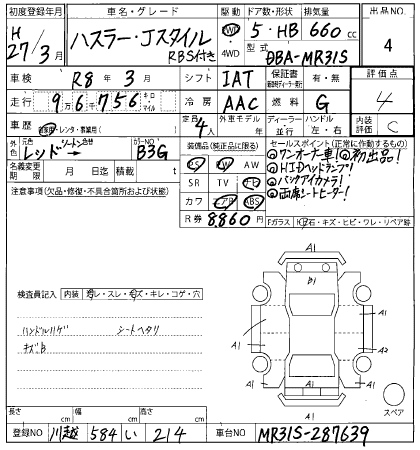 初度登録年月 車名・グレード 駆動 ドア数・形状 排気量 出品NO
H 27/3月 ハスラー・Jスタイル RBS付き FWD ・4WD 5・HB 660cc 4
型式 DBA-MR31S
車検 R8年3月 シフト IAT 保証書 有・無 評価点
走行 9万6千756 キロ マイル 冷房 AAC 燃料 G 4
車歴 自家用・レンタ・事業用( ) 定員 4人 外車モデル 年 ディーラー 並行 ハンドル 左・右 内装評価 C
外色 元色 レッド→ ツートン 色替 カラーNO B3G
名義変更期限 月 日迄 積載 t
注意事項(欠品・修復・不具合箇所および状態)
装備品(純正品に限る)
PS PW AW
SR TV ナビ
カワ エアB ABS
R券 8,860円
セールスポイント(正常に作動するもの)
◎ワンオーナー車!◎初出品!
◎HIDヘッドランプ!
◎バックアイカメラ!
◎両席シートヒーター!
Fガラス 飛石・キズ・ヒビ・ワレ・リペア跡
検査員記入 内装 ヨゴレ・スレ・キズ・キレ・コゲ・穴
ハンドルハゲ シートヘタリ
キズB
A1
B1
A1 A1
A1 A2
A1
A1
スペア
長さ cm 幅 cm 高さ cm
登録NO 川越 584 い 214 車台NO MR31S-287639